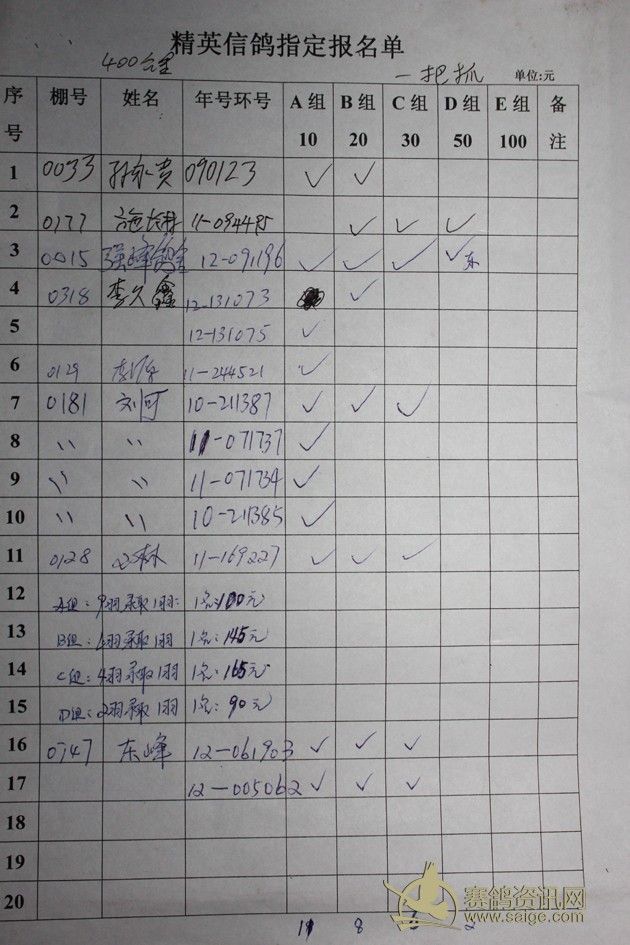 精英信鸽指定报名单
400公里
一把抓 单位:元
序号 棚号 姓名 年号环号 A组 10 B组 20 C组 30 D组 50 E组 100 备注
1 0033 090123 ✓ ✓
2 0177 11-094495 ✓ ✓ ✓
3 0015 12-091196 ✓ ✓ ✓ ✓东
4 0318 李久鑫 12-131073 ✓
5 12-131075 ✓
6 0129 11-244521 ✓
7 0181 刘可 10-211387 ✓ ✓ ✓
8 〃 〃 11-071737 ✓
9 〃 〃 11-071734 ✓
10 〃 〃 10-211385 ✓
11 0128 11-169227 ✓ ✓ ✓
12 A组:9羽录取1羽: 1名:100元
13 B组: 羽录取1羽 1名:145元
14 C组:4羽录取1羽 1名:165元
15 D组:2羽录取1羽 1名:90元
16 0747 东峰 12-061903 ✓ ✓ ✓
17 12-005062 ✓ ✓ ✓
18
19
20
赛鸽资讯网
www.saige.com
11 8